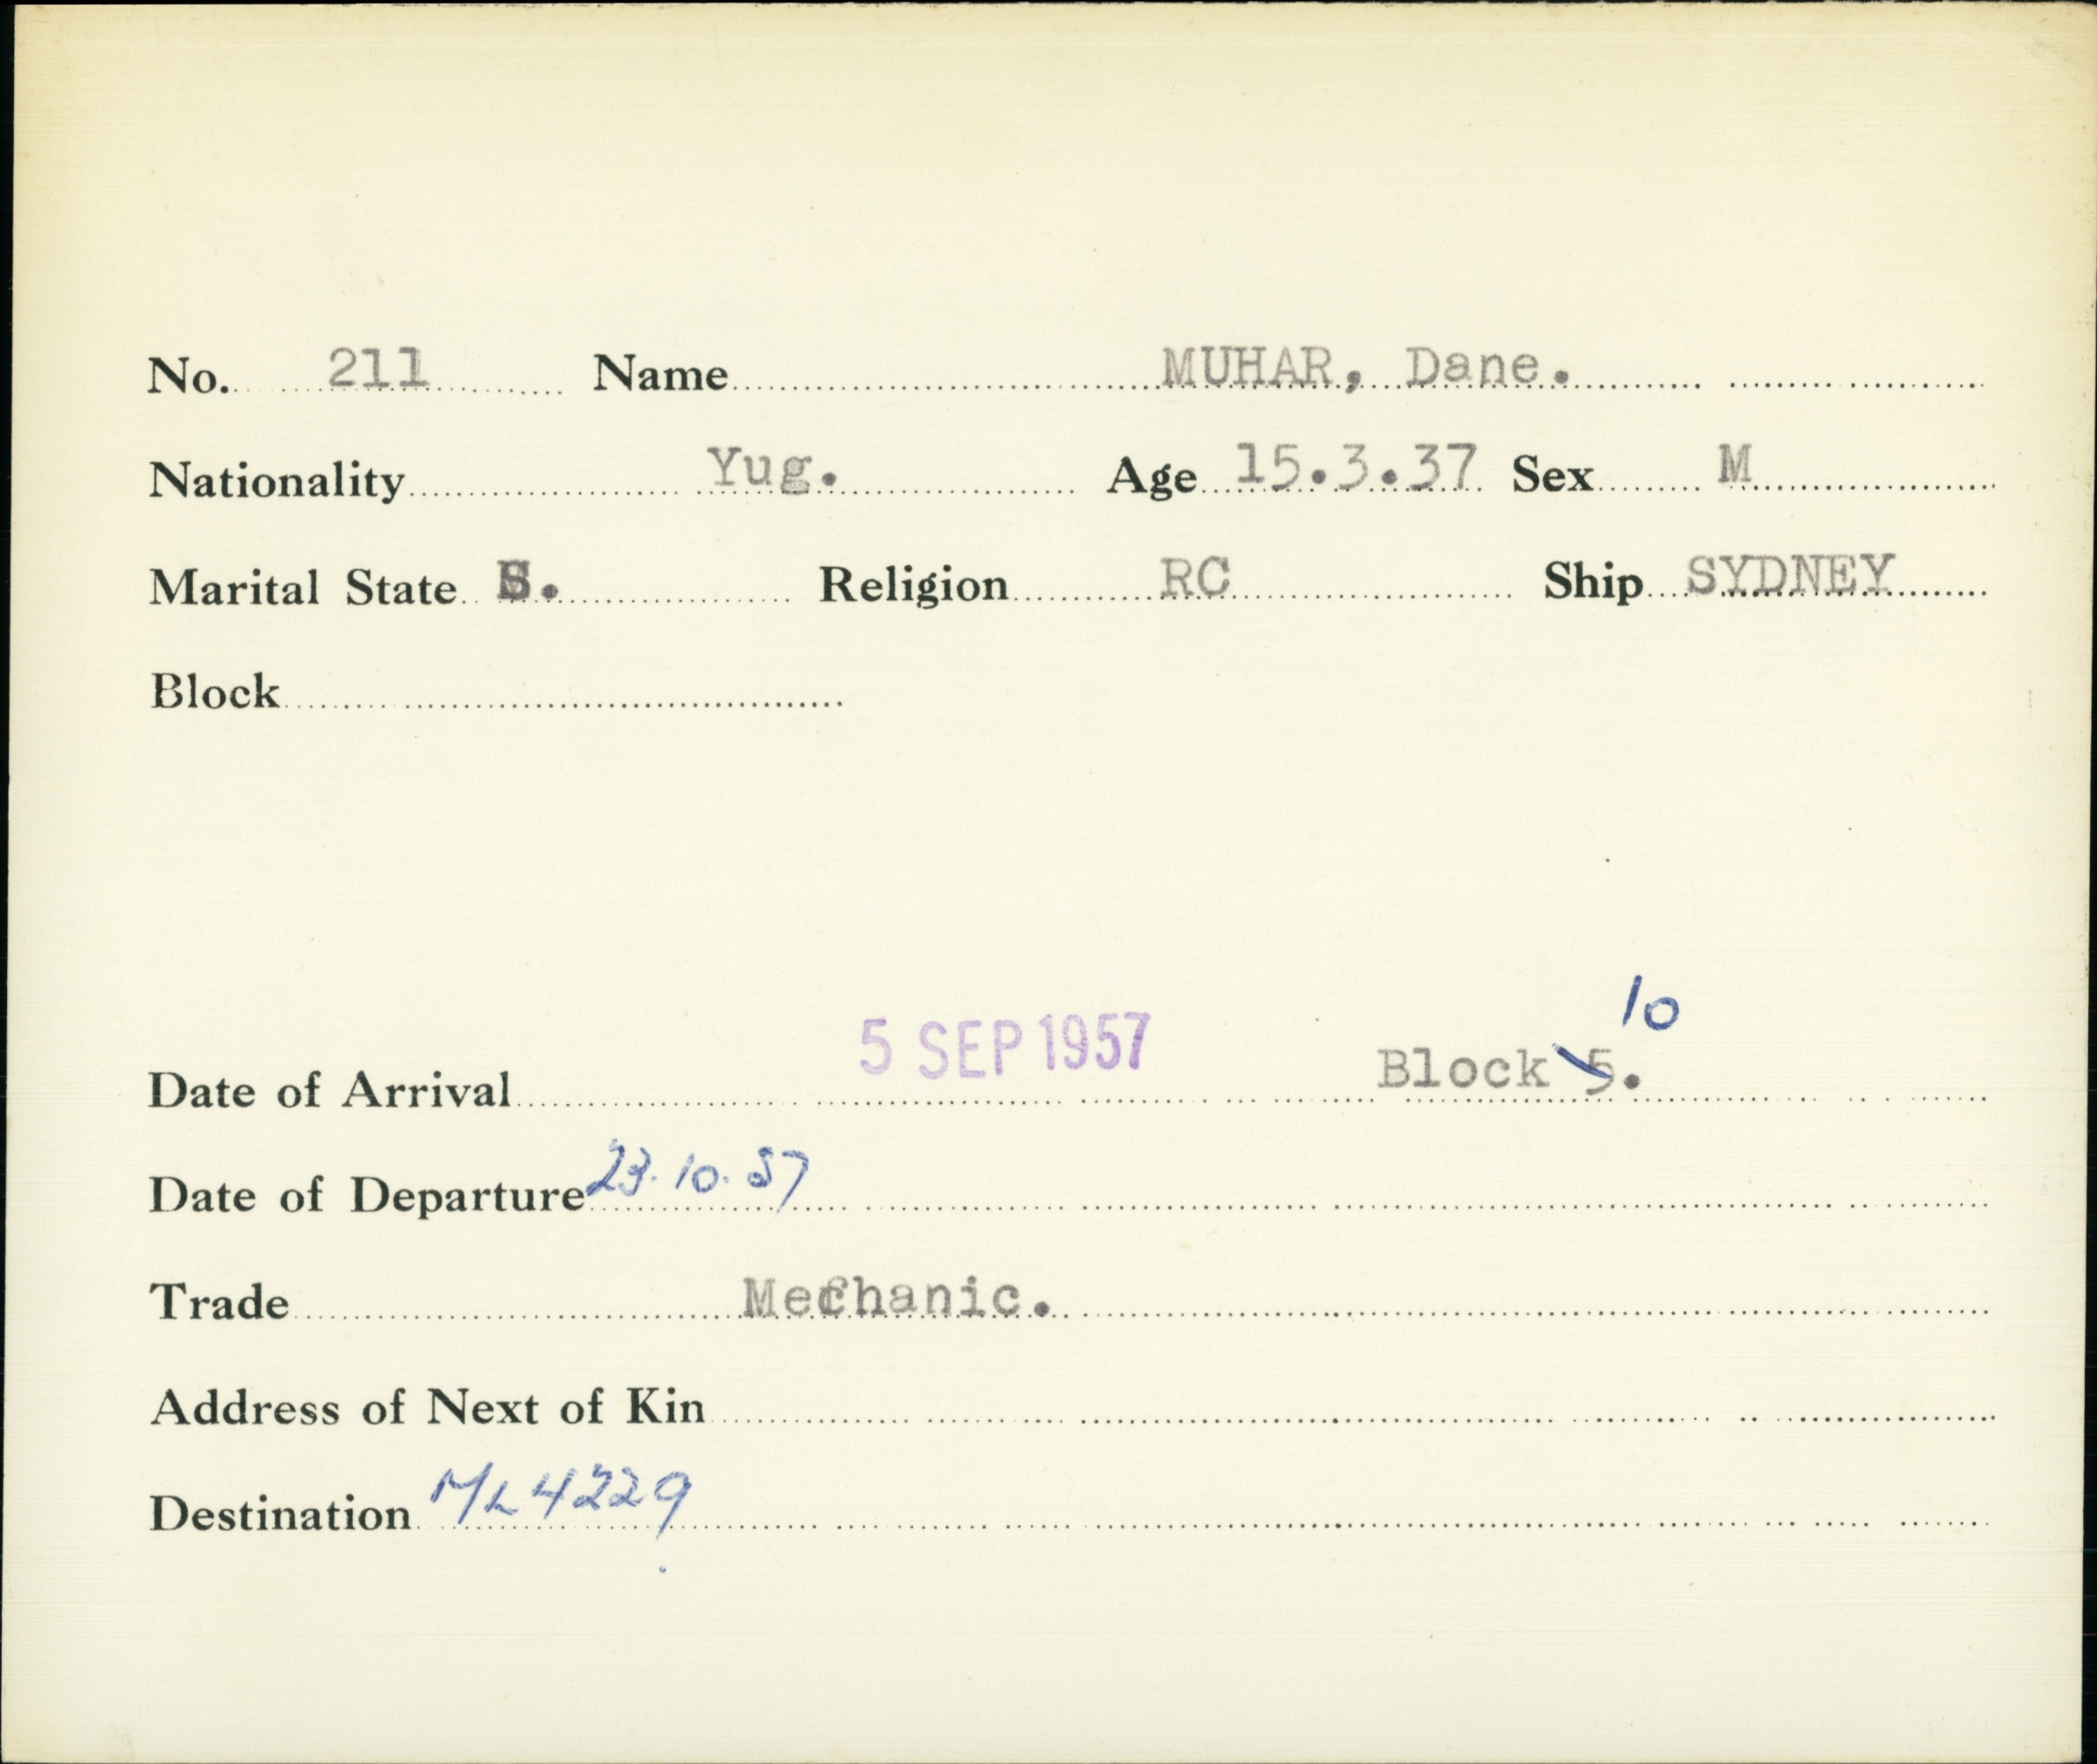 No. 211 Name MUHAR, Dane.
Nationality Yug. Age 15.3.37 Sex M
Marital State S. Religion RC Ship SYDNEY
Block
10
Date of Arrival 5 SEP 1957 Block 5.
Date of Departure 23.10.57
Trade Mechanic.
Address of Next of Kin
Destination ML 4229